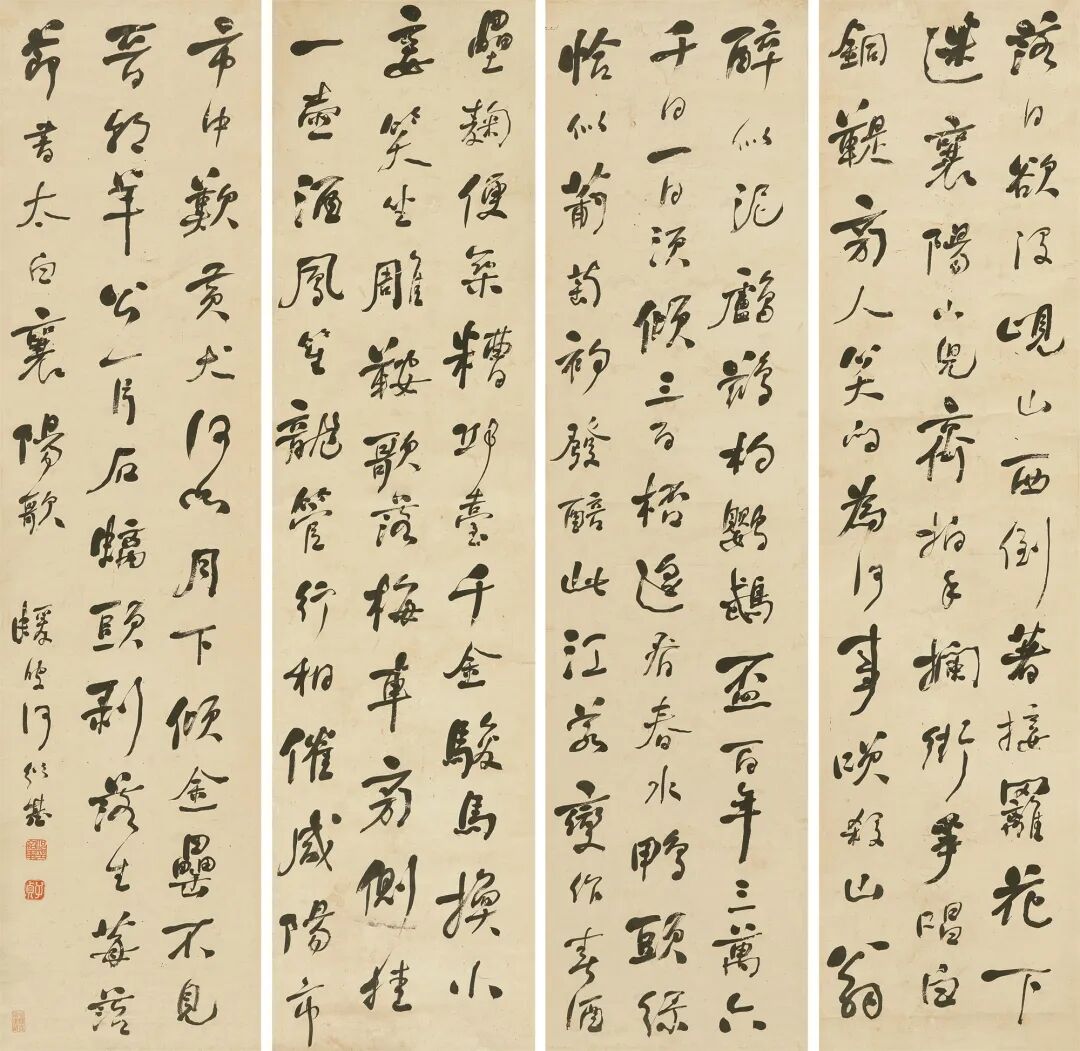 落日欲沒峴山西倒著接䍦花下
迷襄陽小兒齊拍手攔街爭唱白
銅鞮旁人笑問為何事咲殺山翁
醉似泥鸕鶿杓鸚鵡盃百年三萬六
千日一日須傾三百桮遙看春水鴨頭綠
恰似葡萄初發醅此江若變作春酒
壘麴便築糟邱臺千金駿馬換小
妾笑坐雕鞍歌落梅車旁側挂
一壺酒鳳笙龍管行相催咸陽市
市中歎黃犬何如月下傾金罍不見
晉朝羊公一片石螭頭剝落生莓苔
節書太白襄陽歌 蝯叟何紹基